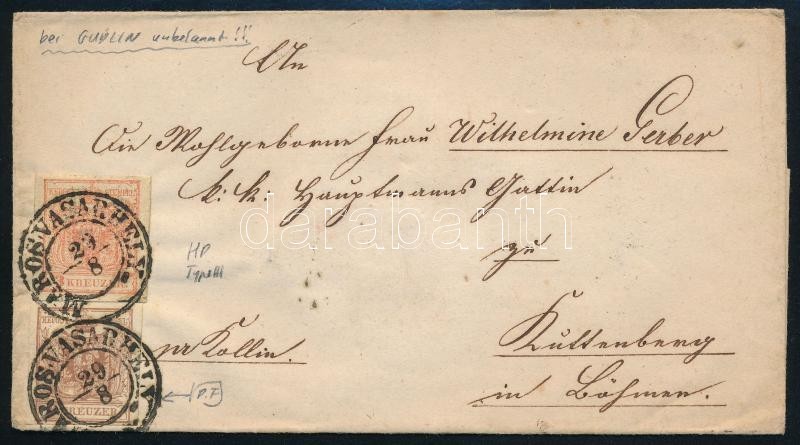 bei GUDLIN unbekannt!!
An
Die Wohlgeborne Frau Wilhelmine Gerber
k. k. Hauptmanns Gattin
zu
Kuttenberg
in Böhmen.
Kollin.
HP
Type III
P.F.
MAROS.VASARHELY
29/8
KREUZER
MAROS.VASARHELY
29/8
KREUZER
darabanth